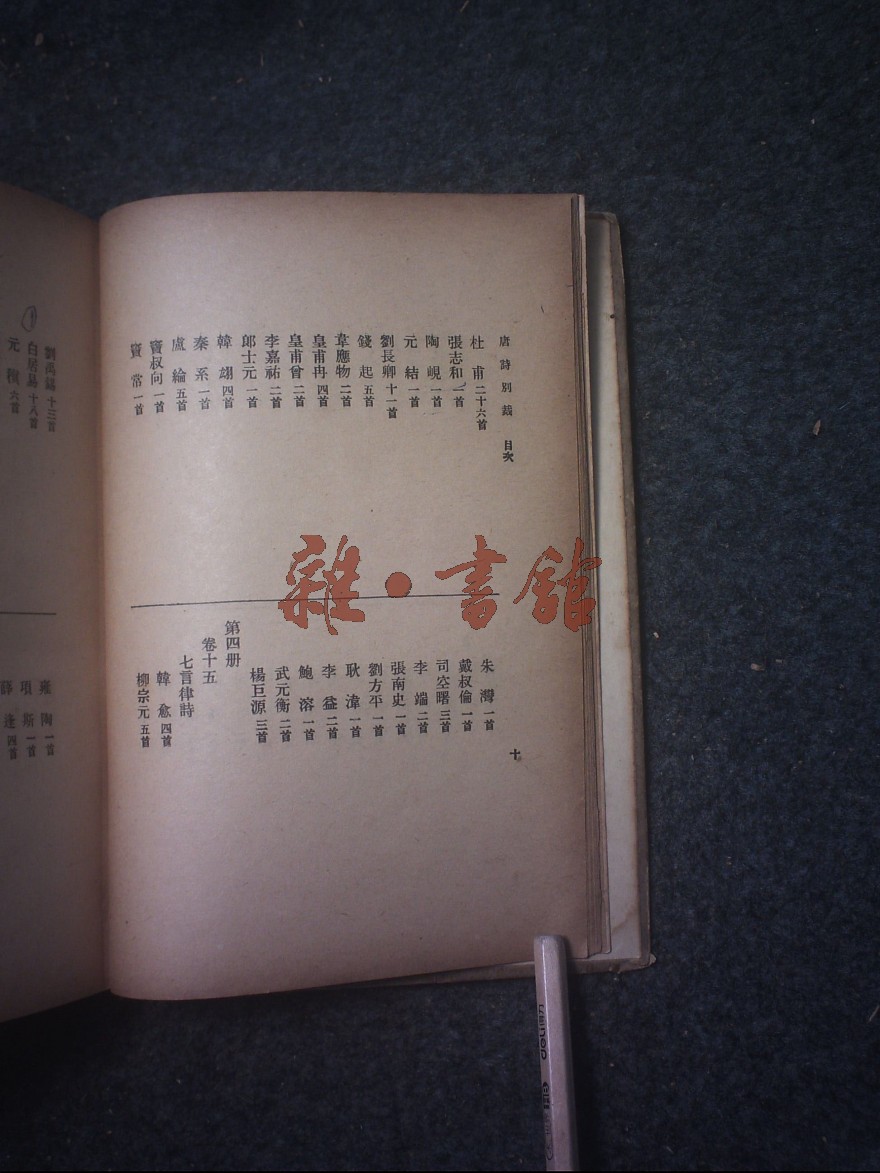 唐詩別裁 目次
杜甫 二十六首
張志和 一首
陶峴 一首
元結 一首
劉長卿 十一首
錢起 五首
韋應物 二首
皇甫冉 四首
皇甫曾 二首
李嘉祐 二首
郎士元 一首
韓翃 四首
秦系 一首
盧綸 五首
竇叔向 一首
竇常 一首
朱灣 一首
戴叔倫 一首
司空曙 三首
李端 二首
張南史 一首
劉方平 一首
耿湋 一首
李益 二首
鮑溶 一首
武元衡 二首
楊巨源 三首
第四册
卷十五
七言律詩
韓愈 四首
柳宗元 五首
十
劉禹錫 十三首
白居易 十八首
元稹 六首
雍陶 一首
項斯 一首
薛逢 四首
雜·書館
deli 得力
HB